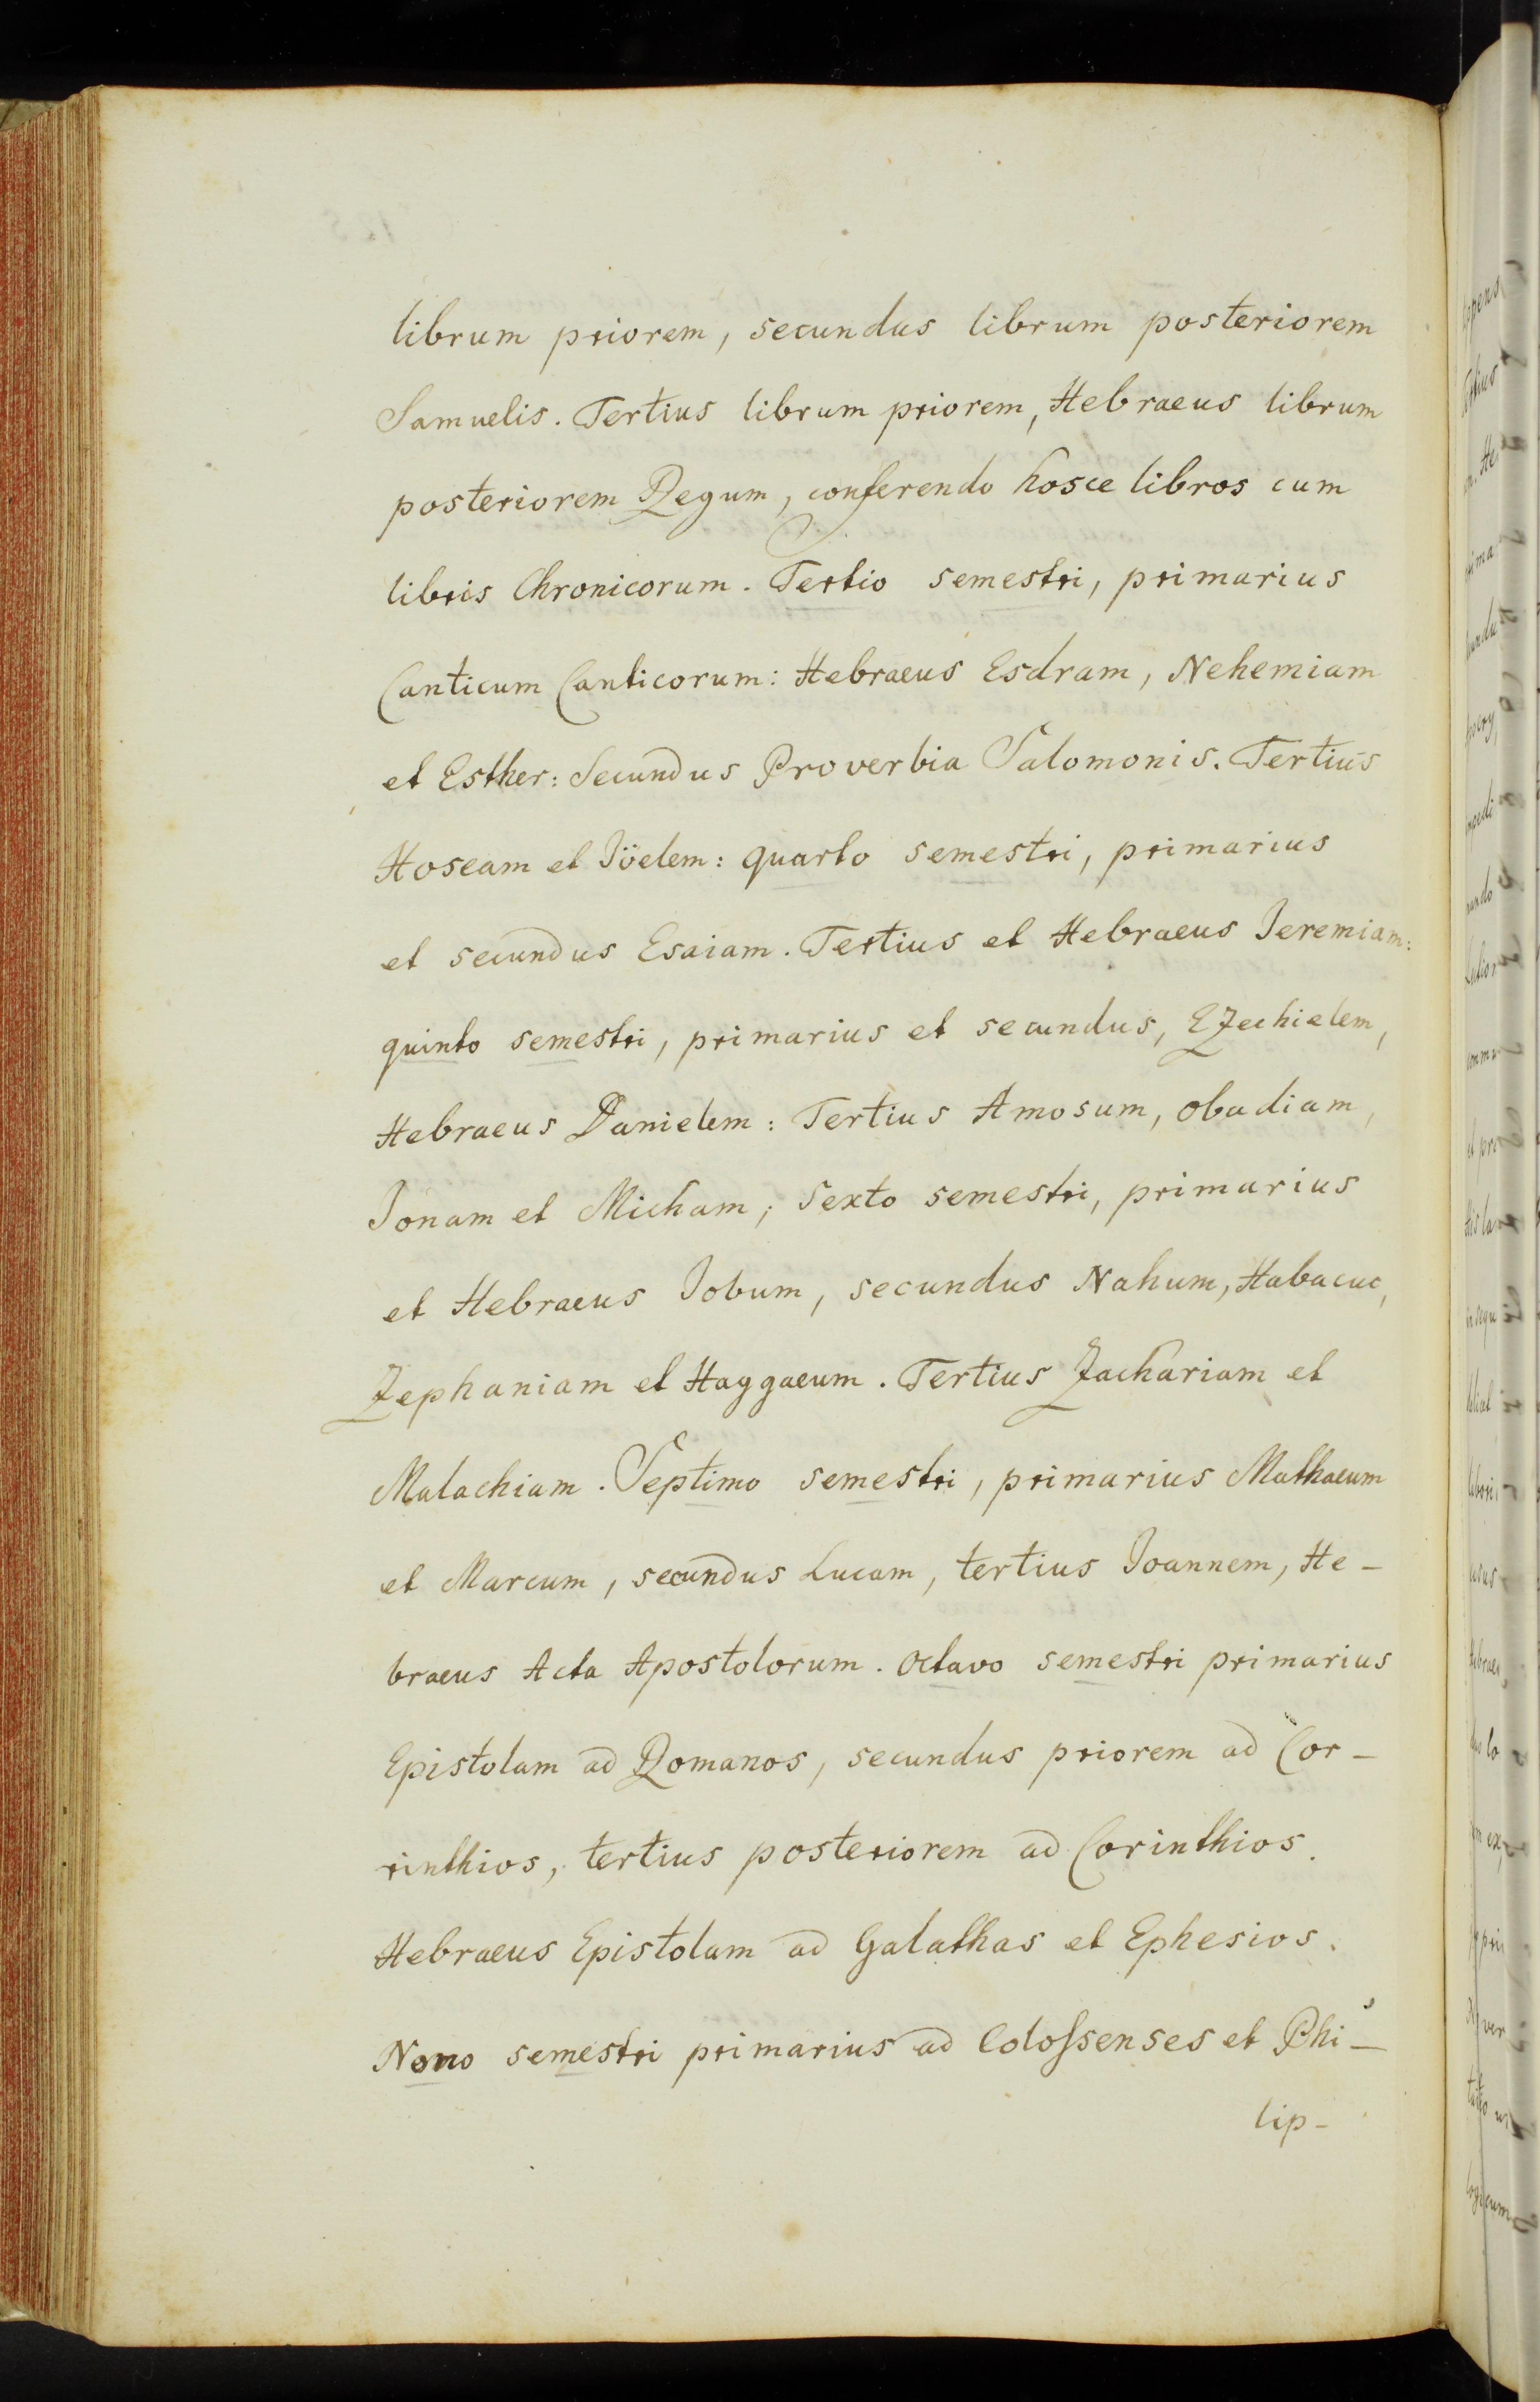 librum priorem, secundus librum posteriorem
Samuelis. Tertius librum priorem, Hebraeus librum
posteriorem Regum, conferendo hosce libros cum
libris Chronicorum. Tertio semestri, primarius
Canticum Canticorum: Hebraeus Esdram, Nehemiam
et Esther: Secundus Proverbia Salomonis. Tertius
Hoseam et Jöelem: quarto semestri, primarius
et secundus Esaiam. Tertius et Hebraeus Jeremiam:
quinto semestri, primarius et secundus, Ezechielem,
Hebraeus Danielem: Tertius Amosum, Obadiam,
Jonam et Micham; Sexto semestri, primarius
et Hebraeus Jobum, secundus Nahum, Habacuc,
Zephaniam et Haggaeum. Tertius Zachariam et
Malachiam. Septimo semestri, primarius Mathaeum
et Marcum, secundus Lucam, tertius Joannem, He-
braeus Acta Apostolorum. Octavo semestri primarius
Epistolam ad Romanos, secundus priorem ad Cor-
rinthios, tertius posteriorem ad Corinthios.
Hebraeus Epistolam ad Galathas et Ephesios.
Nono semestri primarius ad Colossenses et Phi-
lip-